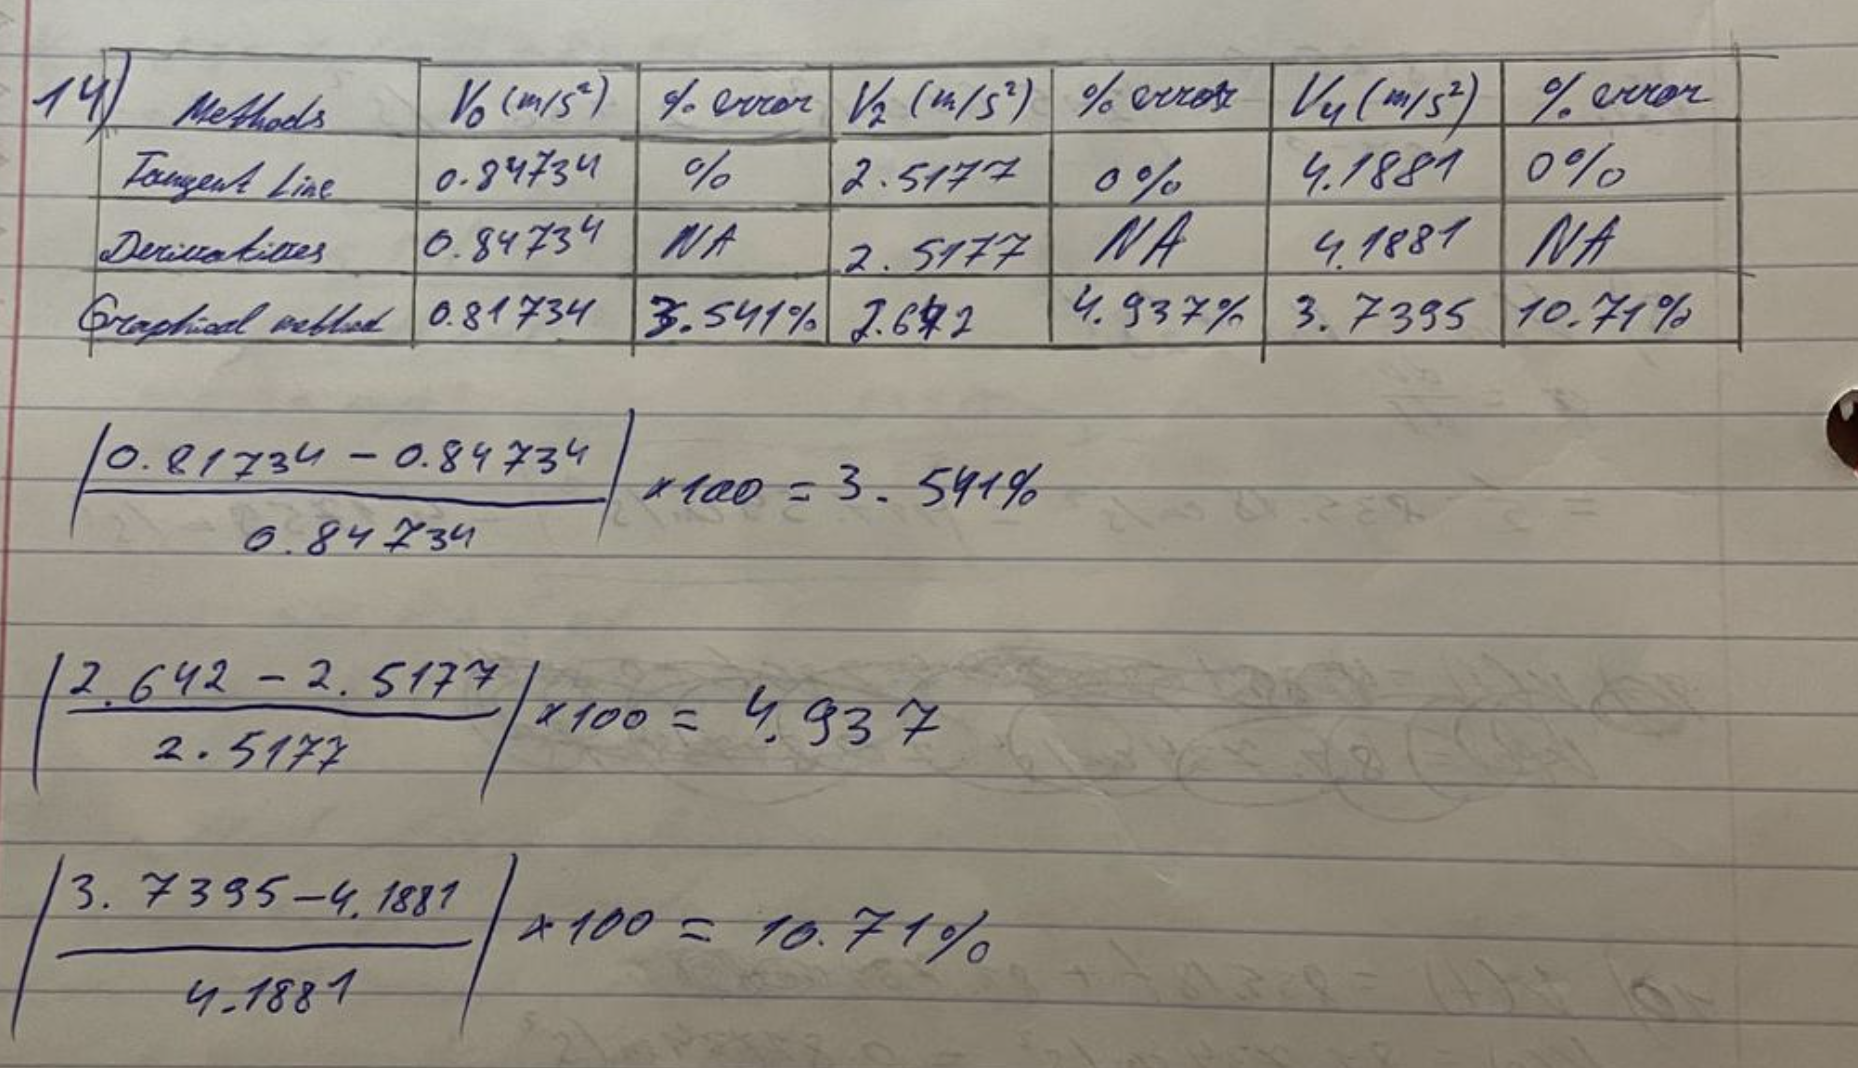 14) Methods V₀ (m/s²) % error V₂ (m/s²) % error V₄ (m/s²) % error
Tangent Line 0.84734 % 2.5177 0% 4.1881 0%
Derivatives 0.84734 NA 2.5177 NA 4.1881 NA
Graphical method 0.81734 3.541% 2.642 4.937% 3.7395 10.71%
|0.81734 - 0.84734| × 100 = 3.541%
0.84734
|2.642 - 2.5177| × 100 = 4.937
2.5177
|3.7395 - 4.1881| × 100 = 10.71%
4.1881